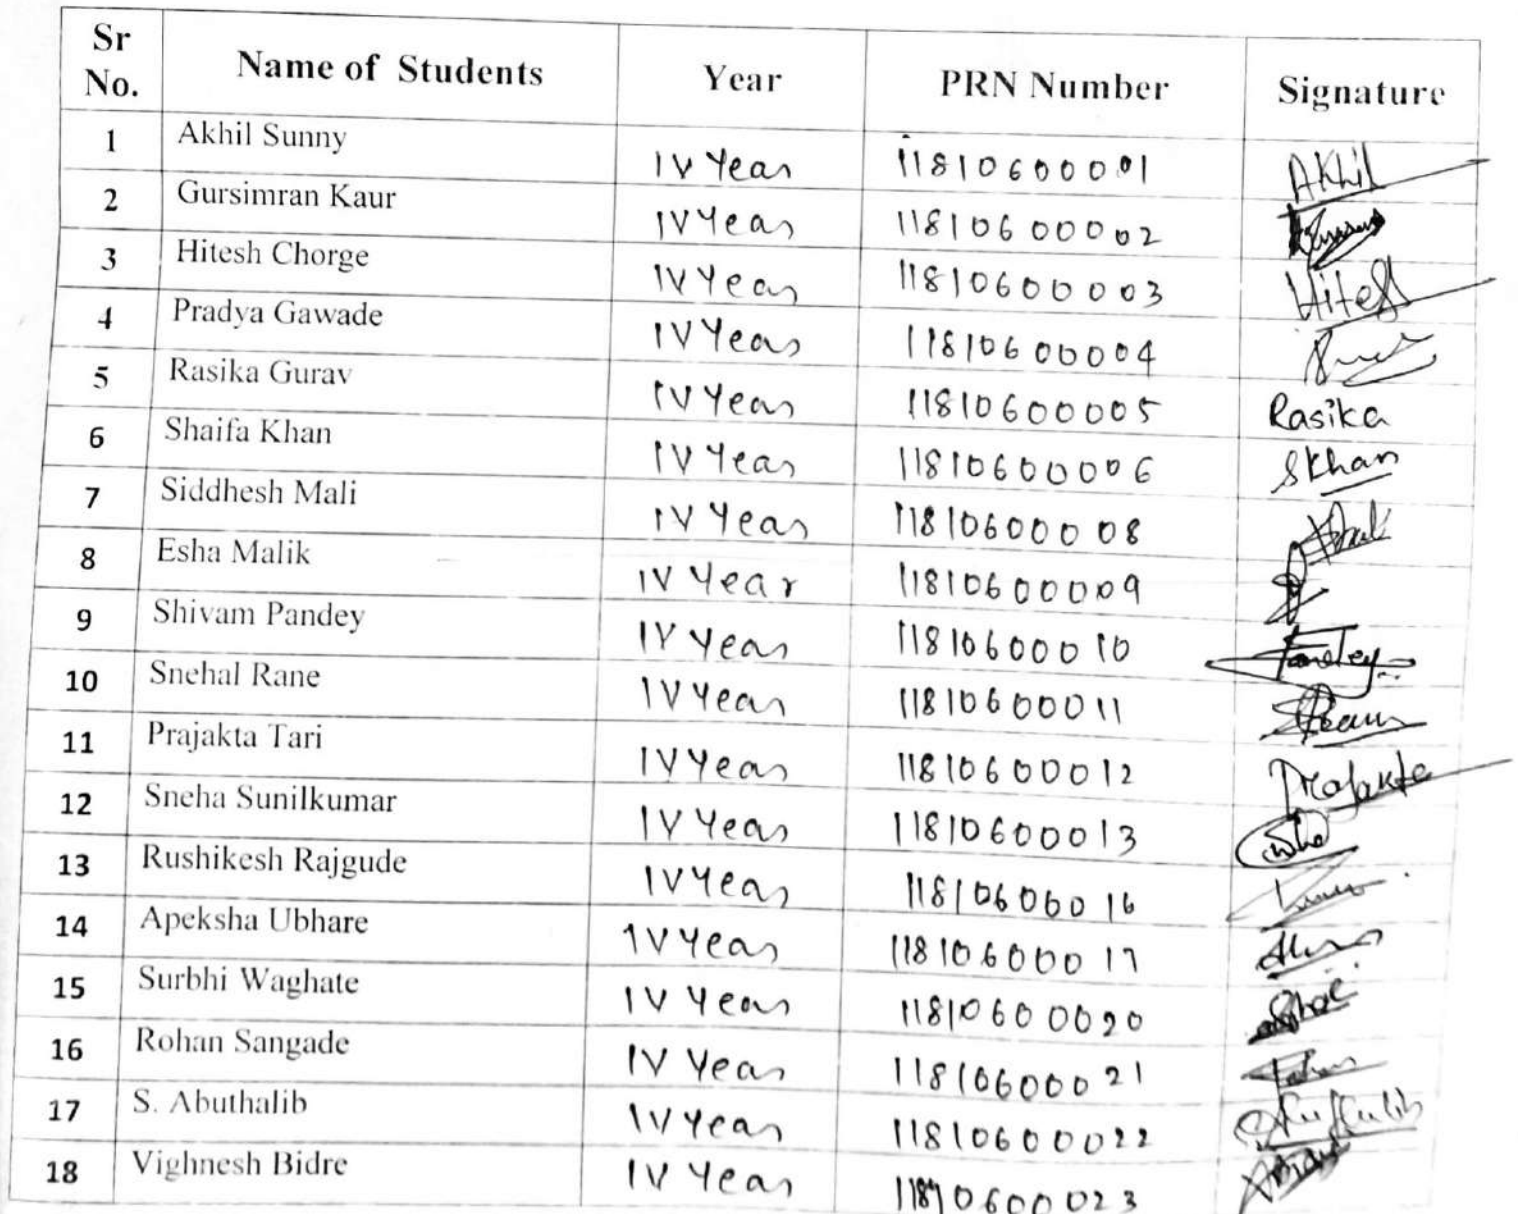 Sr No. Name of Students Year PRN Number Signature
1 Akhil Sunny IV Year 11810600001 Akhil
2 Gursimran Kaur IV Year 11810600002
3 Hitesh Chorge IV Year 11810600003 Hitesh
4 Pradya Gawade IV Year 11810600004
5 Rasika Gurav IV Year 11810600005 Rasika
6 Shaifa Khan IV Year 11810600006 SKhan
7 Siddhesh Mali IV Year 11810600008
8 Esha Malik IV Year 11810600009
9 Shivam Pandey IV Year 11810600010
10 Snehal Rane IV Year 11810600011
11 Prajakta Tari IV Year 11810600012 Prajakta
12 Sneha Sunilkumar IV Year 11810600013
13 Rushikesh Rajgude IV Year 11810600016
14 Apeksha Ubhare IV Year 11810600017
15 Surbhi Waghate IV Year 11810600020
16 Rohan Sangade IV Year 11810600021
17 S. Abuthalib IV Year 11810600022
18 Vighnesh Bidre IV Year 11810600023